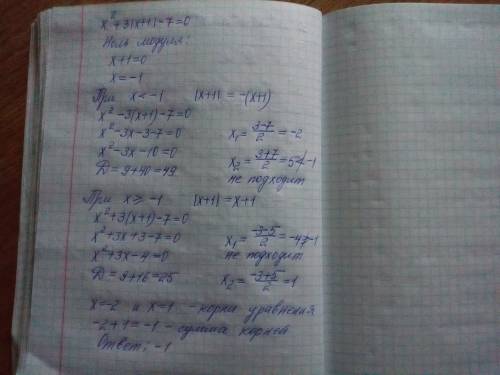 x² + 3|x+1| - 7 = 0
Ноль модуля:
x+1=0
x=-1
При x < -1    |x+1| = -(x+1)
x² - 3(x+1) - 7 = 0
x² - 3x - 3 - 7 = 0    x₁ = (3-7)/2 = -2
x² - 3x - 10 = 0    x₂ = (3+7)/2 = 5 ≮ -1
D = 9+40 = 49    не подходит
При x ≥ -1    |x+1| = x+1
x² + 3(x+1) - 7 = 0
x² + 3x + 3 - 7 = 0    x₁ = (-3-5)/2 = -4 ≱ -1
x² + 3x - 4 = 0    не подходит
D = 9+16 = 25    x₂ = (-3+5)/2 = 1
x=-2 и x=1 - корни уравнения
-2+1 = -1 - сумма корней
Ответ: -1